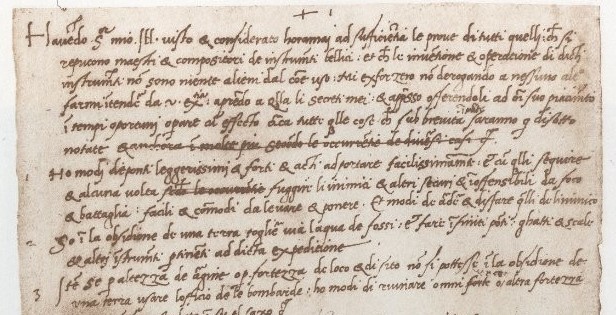 + 1
Havēdo S.r mio Ill. visto & considerato horamai ad sufficiētia le prove di tutti quelli che si
reputono maestri & compositori de instrumēti bellici: et che le invētione & operatione di dicti
instrumēti nō sono niente alieni dal cōe uso: exforzerò nō derogando a nessuno
farmi intēder da v. ex.tia: aprēdo a q̄lla li secreti mei: & appsso offerēdoli ad oī suo piacimēto
ī tempi oportuni opare cū effecto circa tutte q̄lle cose che sub brevità saranno q̄ disotto
notate & ancora ī molte più secōdo le occurrētie de diversi casi
Ho modi de ponti leggerissimi & forti & acti ad portare facilissimamēte: Et cū q̄lli seguire
& alcuna volta secōdo le occurrētie fuggire li inimici & altri securi & inoffensibili da foco
& battaglia: facili & cōmodi da levare & ponere. Et modi de ardere & disfare q̄lli de linimico
So ī la obsidione de una terra toglier via laqua de fossi: et fare īfiniti pōti ghatti & scale
& altri īstrumēti ptinēti ad dicta expeditione
Itē se p altezza de argine o p fortezza de loco & di sito nō si potesse ī la obsidione de
3 una terra usare lofficio de le bombarde: ho modi di ruinare omni forte o altra fortezza